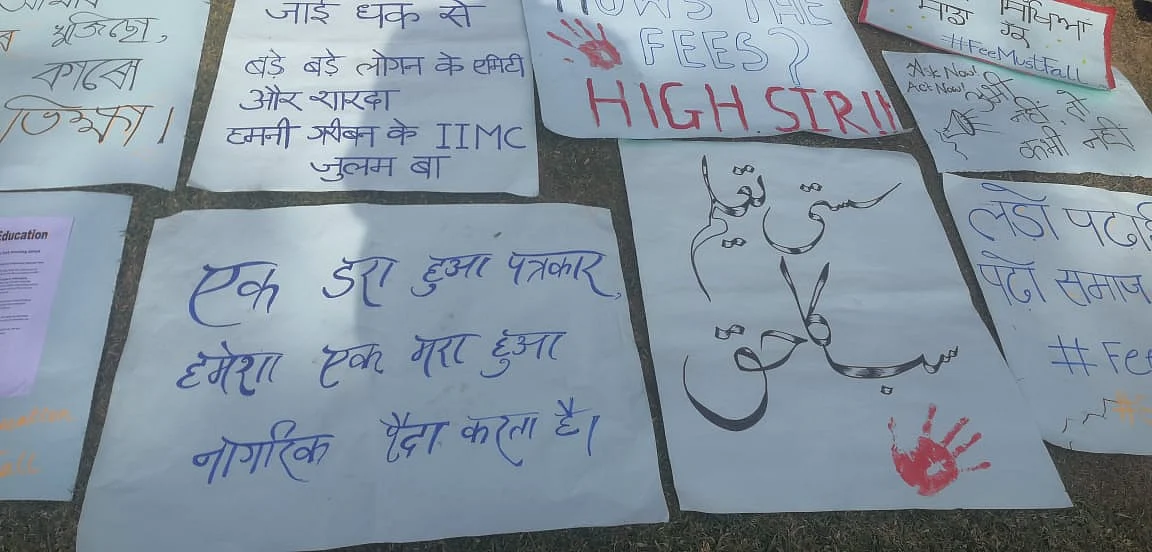 খুজিছো,
কাৰো
ভিক্ষা।
जाई धक से
बड़े बड़े लोगन के एमिटी
और शारदा
हमनी गरीबन के IIMC
जुलम बा
HOW'S THE
FEES?
HIGH SIR!!
साडा सिधिआ
हक
#FeeMustFall
Ask Now!
Act Now! अभी
नहीं तो
कभी नहीं
Education
एक डरा हुआ पत्रकार,
हमेशा एक मरा हुआ
नागरिक पैदा करता है।
سستی تعلیم
سب کا حق
लड़ो पढाई
पढो समाज
#Fee